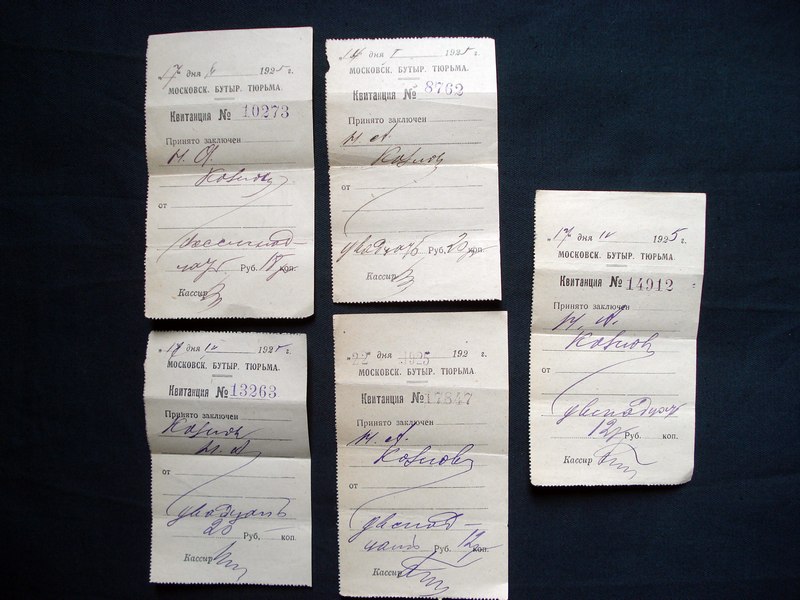 17 дня 192 г.
МОСКОВСК. БУТЫР. ТЮРЬМА.
Квитанция № 10273
Принято заключен
Н. А.
Козлову
от
Руб. 18 коп.
Кассир
14 дня 1925 г.
МОСКОВСК. БУТЫР. ТЮРЬМА.
Квитанция № 8762
Принято заключен
Н. А.
Козлов
от
двадцать Руб. 20 коп.
Кассир
17 дня 1925 г.
МОСКОВСК. БУТЫР. ТЮРЬМА.
Квитанция № 14912
Принято заключен
Н. А.
Козлов
от
двенадцать
12 Руб. коп.
Кассир
17 дня 192 г.
МОСКОВСК. БУТЫР. ТЮРЬМА.
Квитанция № 13263
Принято заключен
Козлов
Н. А
от
двадцать
20
Руб. коп.
Кассир
дня 1925 192 г.
МОСКОВСК. БУТЫР. ТЮРЬМА.
Квитанция № 17847
Принято заключен
Н. А.
Козлов
от
двенад-
цать Руб. 12 коп.
Кассир